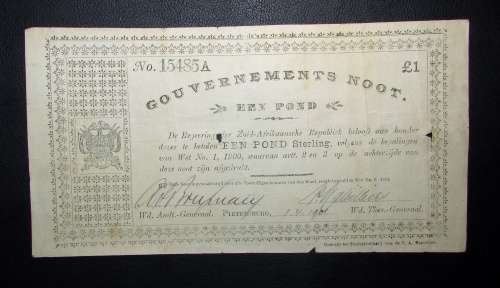 No. 15485A £1
GOUVERNEMENTS NOOT.
EEN POND
De Regeering der Zuid-Afrikaansche Republiek belooft aan houder
dezes te betalen EEN POND Sterling, volgens de bepalingen
van Wet No. 1, 1900, waarvan art. 2 en 3 op de achterzijde van
deze noot zijn afgedrukt.
Wd. Audt.-Generaal. PIETERSBURG, 1.4.1901 Wd. Thes.-Generaal.